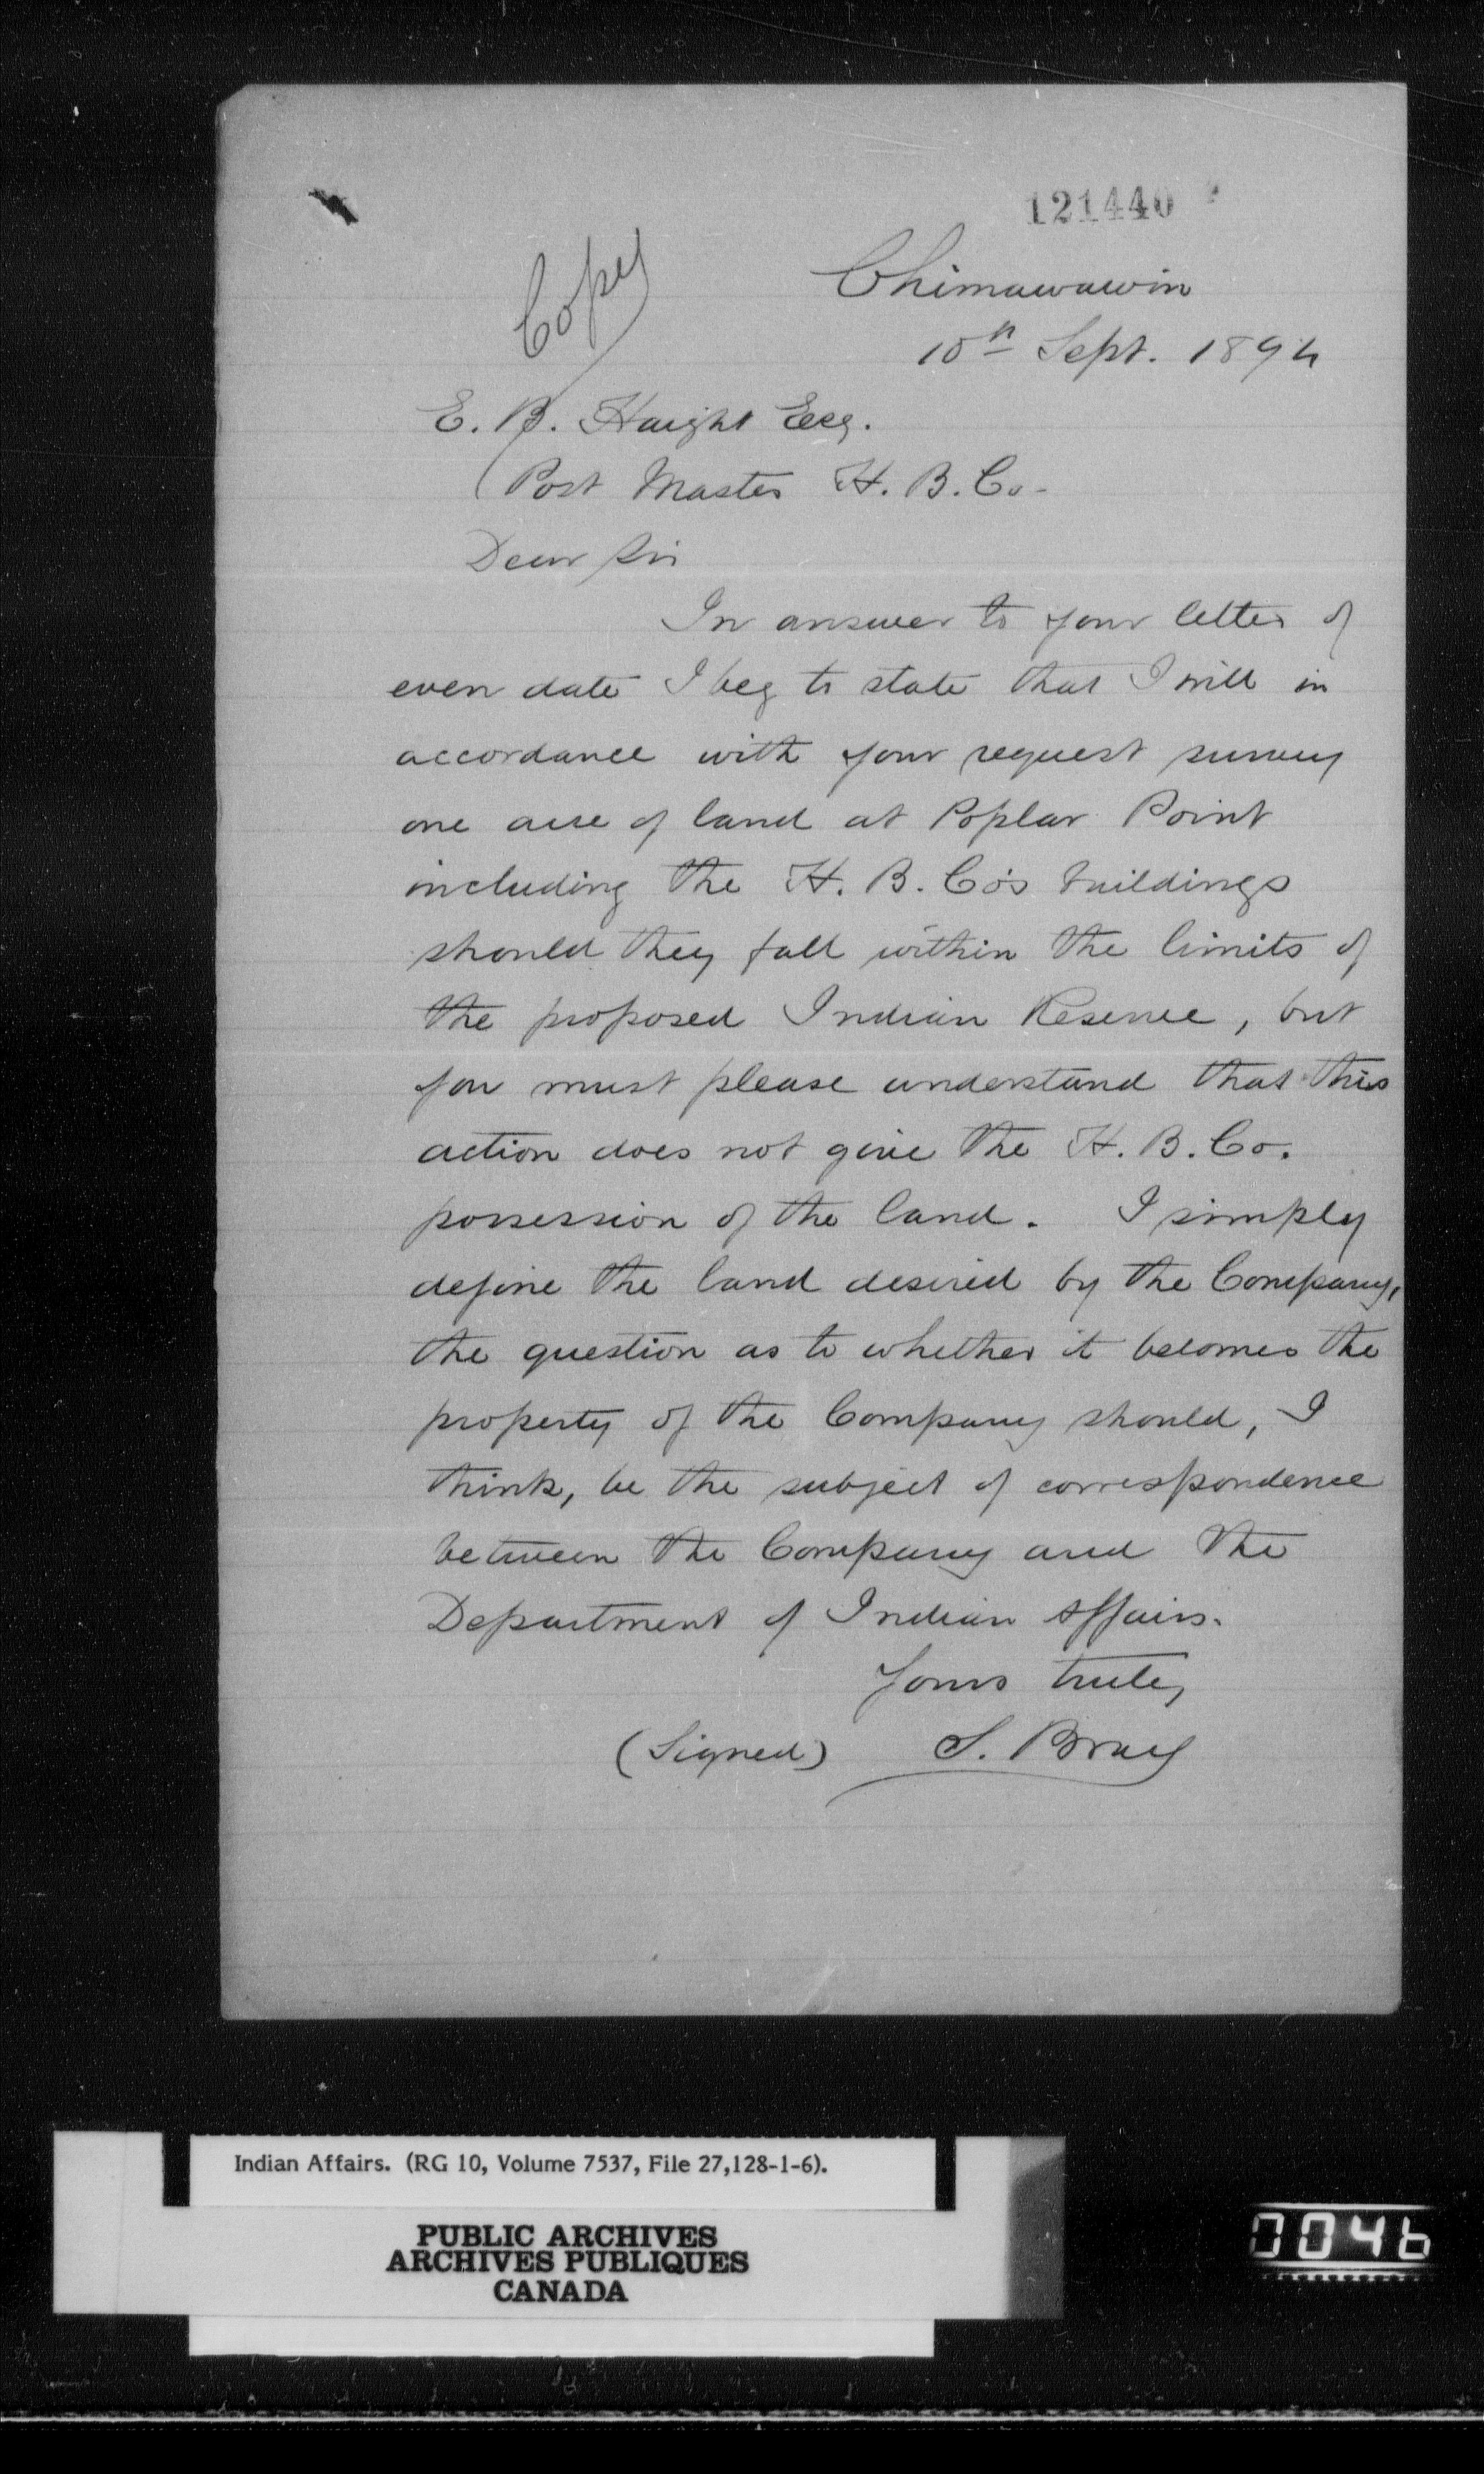 121440
Copy
Chimawawin
10th Sept. 1894
E. B. Haight Esq.
Post Master H. B. Co.
Dear Sir
In answer to your letter of
even date I beg to state that I will in
accordance with your request survey
one acre of land at Poplar Point
including the H. B. Co's buildings
should they fall within the limits of
the proposed Indian Reserve, but
you must please understand that this
action does not give the H. B. Co.
possession of the land. I simply
define the land desired by the Company,
the question as to whether it becomes the
property of the Company should, I
think, be the subject of correspondence
between the Company and the
Department of Indian Affairs.
Yours truly
(Signed) S. Bray
Indian Affairs. (RG 10, Volume 7537, File 27,128-1-6).
PUBLIC ARCHIVES
ARCHIVES PUBLIQUES
CANADA
0046